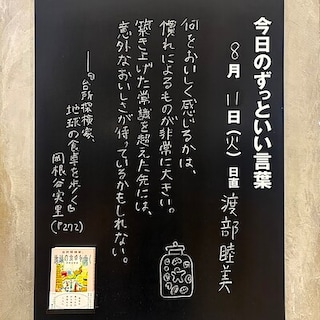 今日のずっといい言葉
8月11日(火)日直 渡部睦美
何をおいしく感じるかは、
慣れによるものが非常に大きい。
築き上げた常識を超えた先には、
意外なおいしさが待っているかもしれない。
——『台所探検家、
地球の食卓を歩く』
岡根谷実里
(P272)